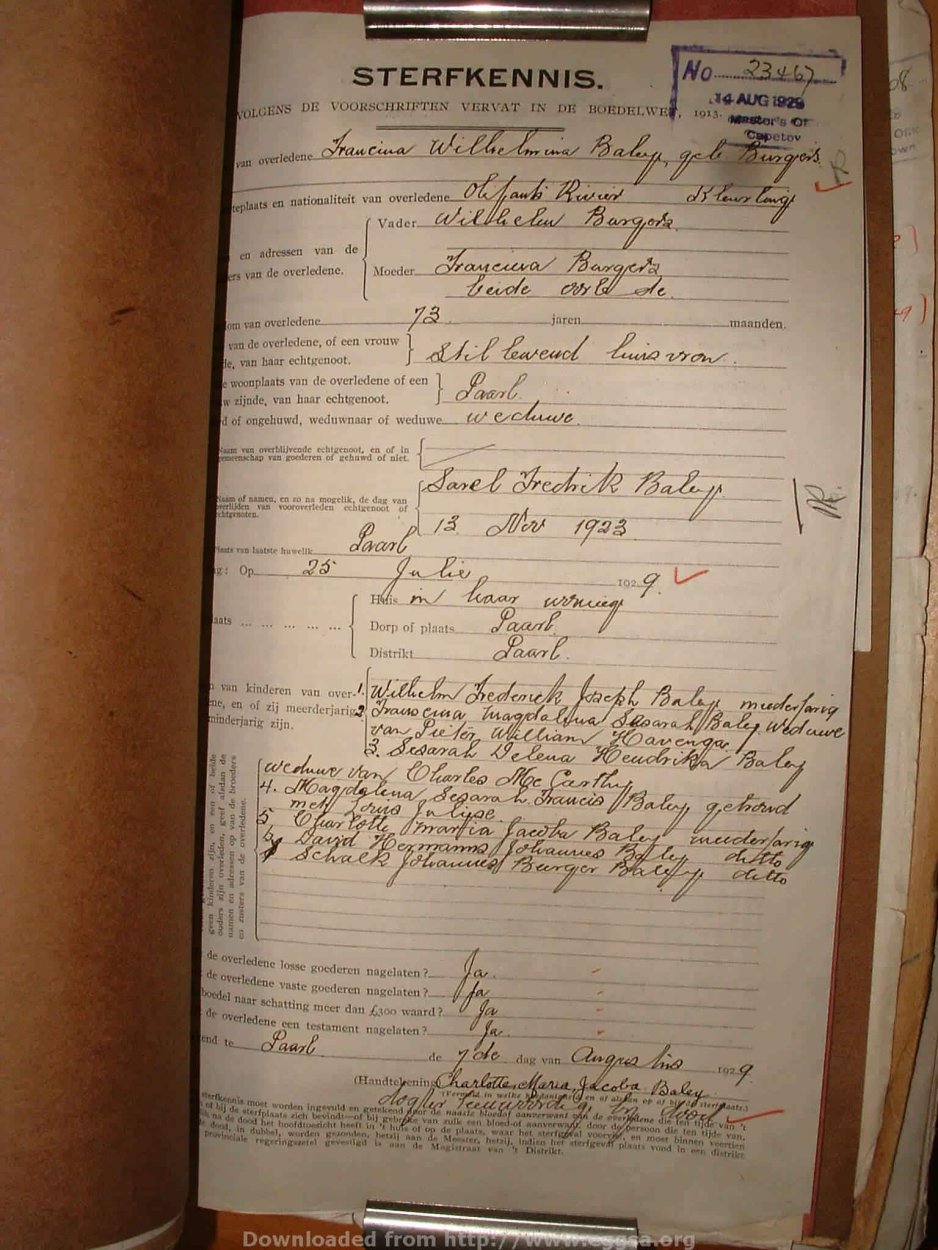 STERFKENNIS.
No 23467
14 AUG 1929
Master's Of
VOLGENS DE VOORSCHRIFTEN VERVAT IN DE BOEDELWET, 1913.
van overledene Francina Wilhelmina Baley, geb Burgers
teplaats en nationaliteit van overledene Olifants Rivier Kleurling
Vader Wilhelm Burgers
en adressen van de
ers van de overledene. Moeder Francina Burgers
beide
dom van overledene 73 jaren maanden.
van de overledene, of een vrouw
de, van haar echtgenoot. Stil levend huisvrou
e woonplaats van de overledene of een
w zijnde, van haar echtgenoot. Paarl
d of ongehuwd, weduwnaar of weduwe weduwe
Naam van overblijvende echtgenoot, en of in
gemeenschap van goederen of gehuwd of niet.
Sarel Fredrik Baley
Naam of namen, en zo na mogelik, de dag van
overlijden van vooroverleden echtgenoot of
echtgenoten.
13 Nov 1923
Plaats van laatste huwelik Paarl
ag: Op 25 Julie 1929
Huis in haar woning
aats Dorp of plaats Paarl
Distrikt Paarl.
n van kinderen van over- 1. Wilhelm Frederick Joseph Baley meederjarig
ne, en of zij meerderjarig 2 Franscina Magdalina Sesarah Baley weduwe
minderjarig zijn. van Pieter William Havenga
3. Sesarah Delena Hendrika Baley
weduwe van Charles Mc Carthy
4. Magdalena Sesarah Francis Baley getroud
met Louis Julipse.
5 Charlotte Maria Jacoba Baley meederjarig
David Hermanus Johannes Baley ditto
Schalk Johannes Burger Baley ditto
geen kinderen zijn, en een of beide
ouders zijn overleden, geef alsdan de
namen en adressen op van de broeders
en zusters van de overledene.
de overledene losse goederen nagelaten? Ja.
de overledene vaste goederen nagelaten? Ja
boedel naar schatting meer dan £300 waard? Ja
de overledene een testament nagelaten? Ja.
end te Paarl de 7de dag van Augustus 1929
(Handtekening) Charlotte Maria Jacoba Baley
dogter teenwoordig by dood
sterfkennis moet worden ingevuld en getekend door de naaste bloed of aanverwant van de overledene die ten tijde van 't
of bij de sterfplaats zich bevindt—of bij gebreke van zulk een bloed-of aanverwant, door de persoon die ten tijde van,
na de dood het hoofdtoezicht heeft in 't huis of op de plaats, waar het sterfgeval voorviel, en moet binnen veertien
dood, in dubbel, worden gezonden, hetzij aan de Meester, hetzij, indien het sterfgeval plaats vond in een distrikt
provinciale regeringszetel gevestigd is aan de Magistraat van 't Distrikt.
Downloaded from http://www.eggsa.org